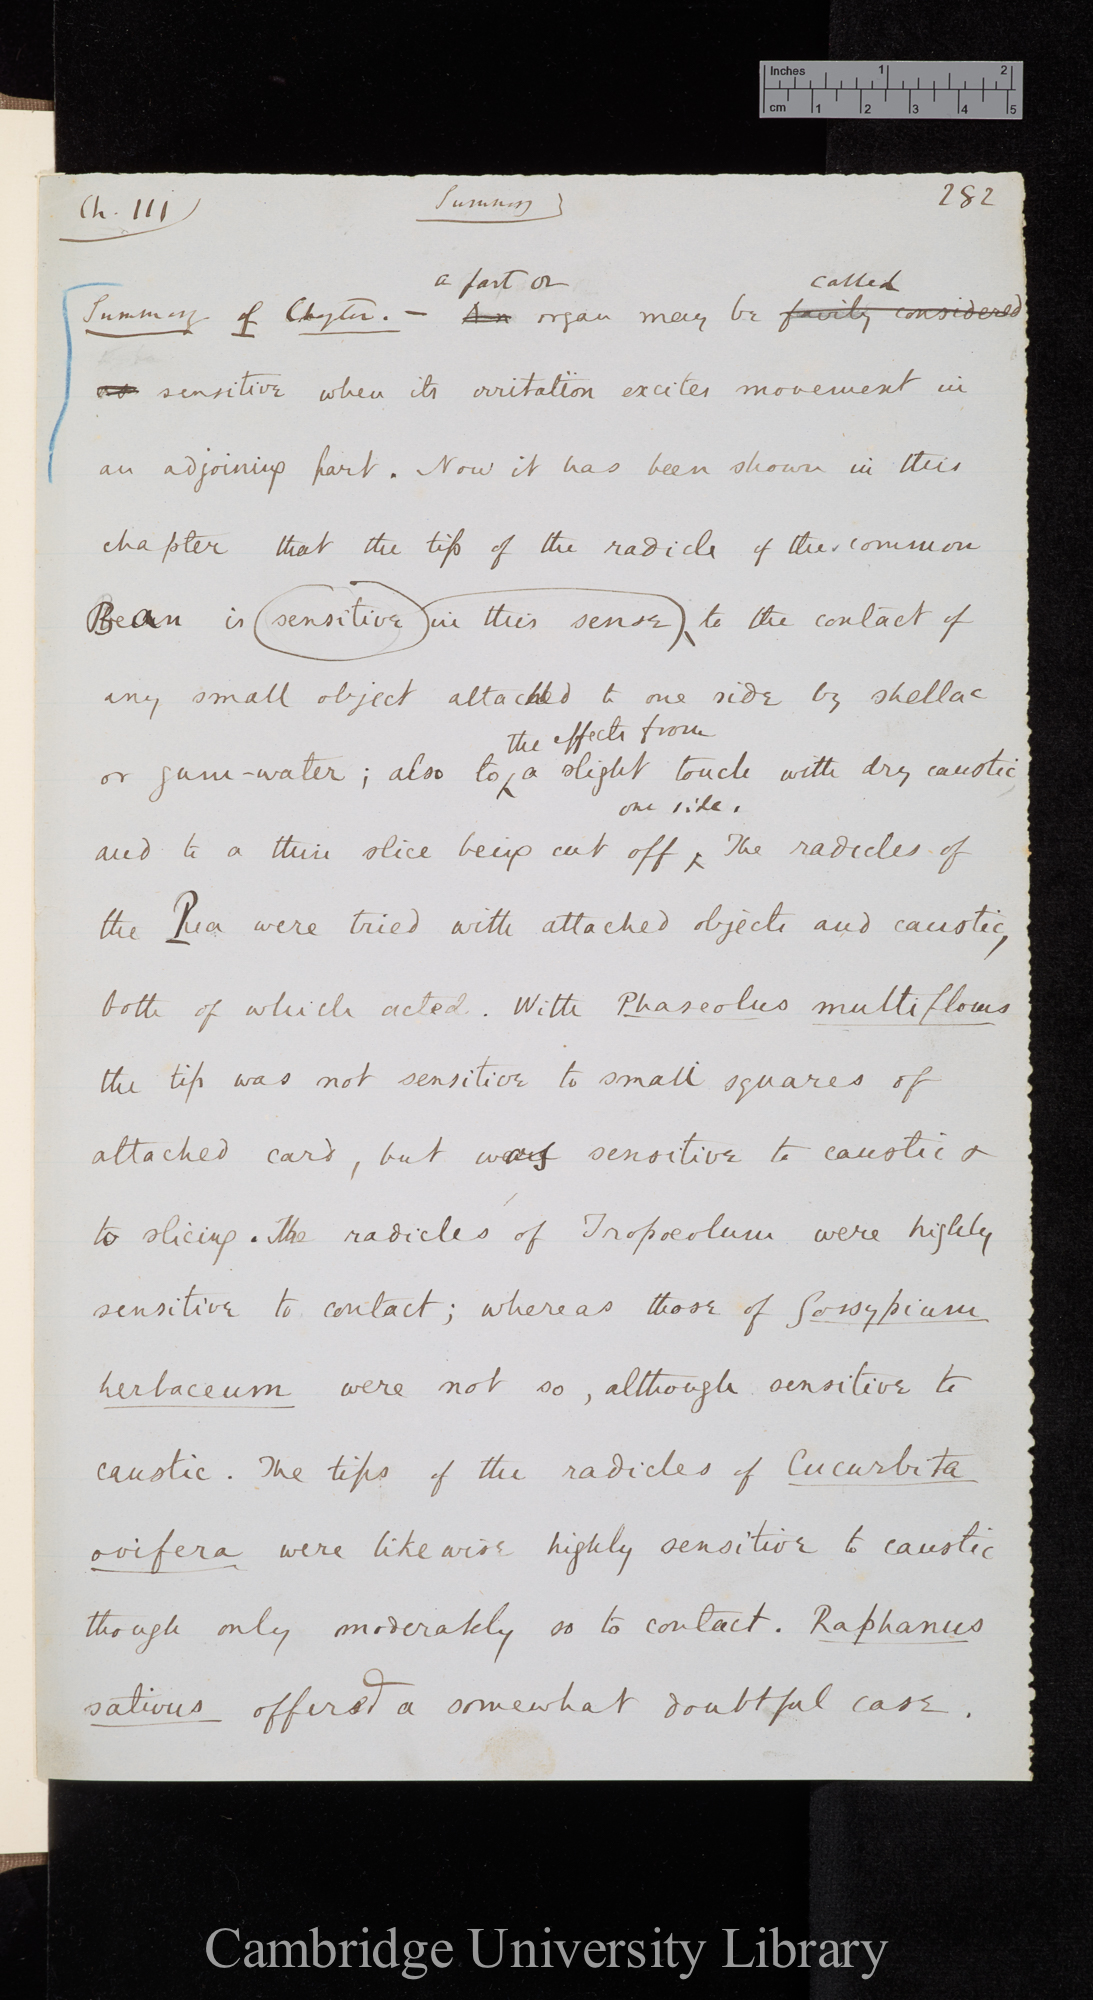 Inches 1 2
cm 1 2 3 4 5
Ch. III) Summary} 282
a part or called
Summary of Chapter. — An organ may be fairly considered
as sensitive when its irritation excites movement in
an adjoining part. Now it has been shown in this
chapter that the tip of the radicle of the common
Bean is (sensitive) in this sense) to the contact of
any small object attached to one side by shellac
the effects from
or gum-water; also to a slight touch with dry caustic,
one side.
and to a thin slice being cut off The radicles of
the Pea were tried with attached objects and caustic,
both of which acted. With Phaseolus multiflorus
the tip was not sensitive to small squares of
attached card, but was sensitive to caustic &
to slicing. The radicles of Tropoeolum were highly
sensitive to contact; whereas those of Gossypium
herbaceum were not so, although sensitive to
caustic. The tips of the radicles of Cucurbita
ovifera were likewise highly sensitive to caustic
though only moderately so to contact. Raphanus
sativus offered a somewhat doubtful case.
Cambridge University Library